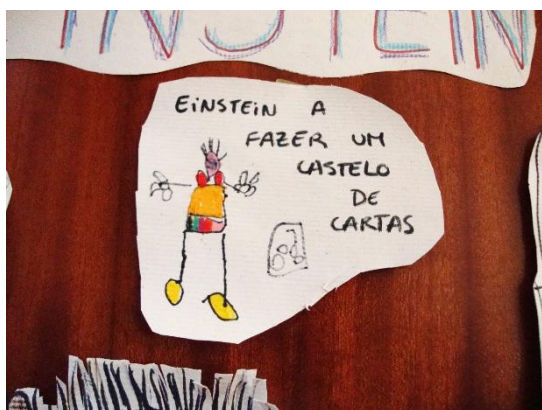 EINSTEIN
EiNSTEiN A
FAZER UM
CASTELO
DE
CARTAS